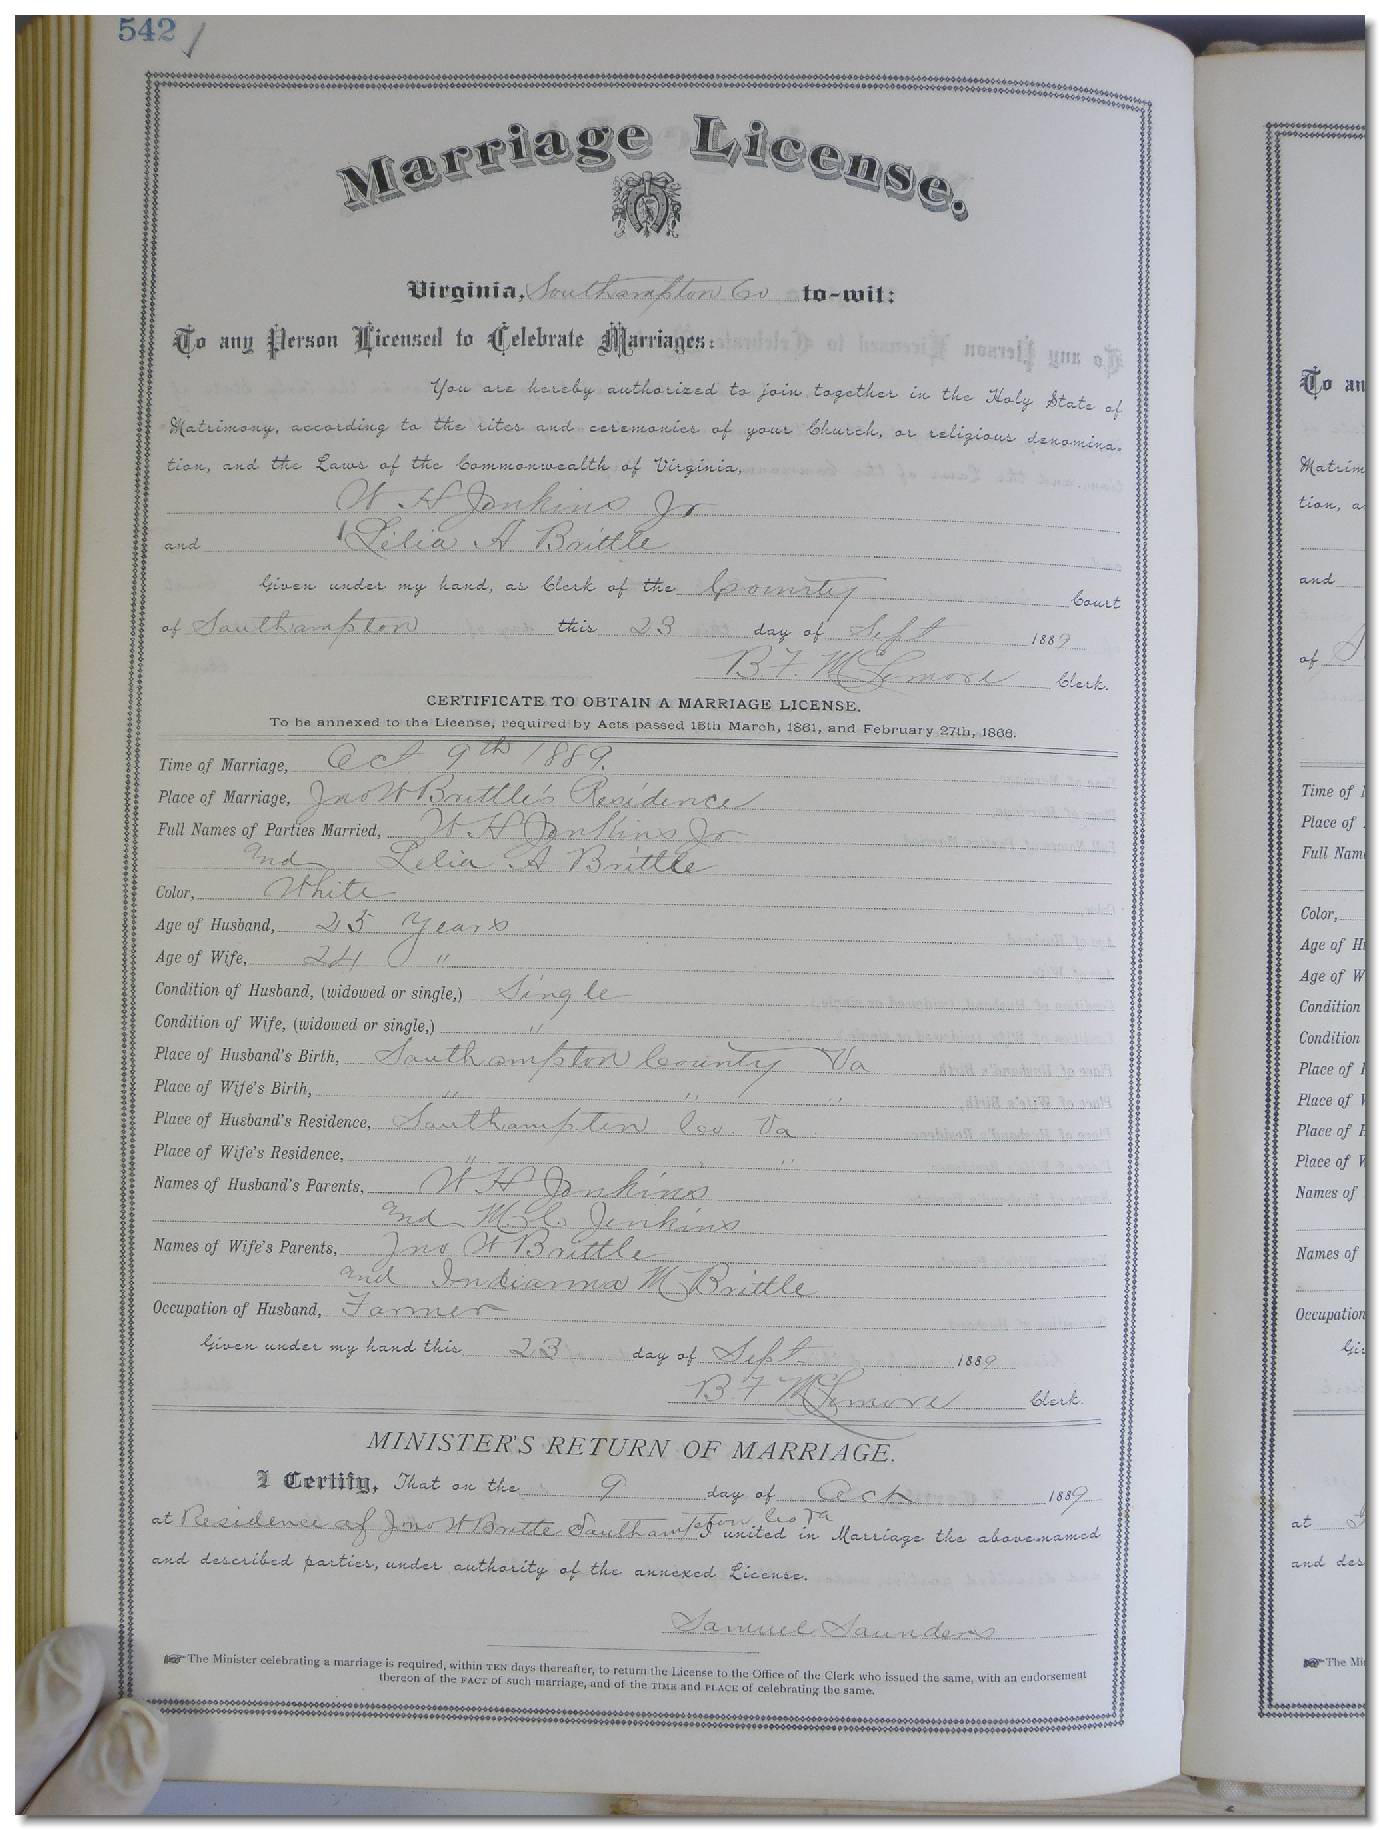 542
Marriage License.
Virginia, Southampton Co to-wit:
To any Person Licensed to Celebrate Marriages:
You are hereby authorized to join together in the Holy State of
Matrimony, according to the rites and ceremonies of your Church, or religious denomina-
tion, and the Laws of the Commonwealth of Virginia,
W H Jenkins Jr
and Lelia A Brittle
Given under my hand, as Clerk of the County Court
of Southampton this 23 day of Sept 1889
B. F. McLemore Clerk.
CERTIFICATE TO OBTAIN A MARRIAGE LICENSE.
To be annexed to the License, required by Acts passed 15th March, 1861, and February 27th, 1866.
Time of Marriage, Oct 9th 1889.
Place of Marriage, Jno W Brittle's Residence
Full Names of Parties Married, W H Jenkins Jr
And Lelia A Brittle
Color, White
Age of Husband, 25 Years
Age of Wife, 24 "
Condition of Husband, (widowed or single,) Single
Condition of Wife, (widowed or single,) "
Place of Husband's Birth, Southampton County Va
Place of Wife's Birth, " " "
Place of Husband's Residence, Southampton Co. Va
Place of Wife's Residence, " " "
Names of Husband's Parents, W H Jenkins
And M. C. Jenkins
Names of Wife's Parents, Jno W Brittle
and Indianna M Brittle
Occupation of Husband, Farmer
Given under my hand this 23 day of Sept 1889
B F McLemore Clerk.
MINISTER'S RETURN OF MARRIAGE.
I Certify, That on the 9 day of Oct 1889
at Residence of Jno W Brittle Southampton Co Va I united in Marriage the above-named
and described parties, under authority of the annexed License.
Samuel Saunders
☞ The Minister celebrating a marriage is required, within TEN days thereafter, to return the License to the Office of the Clerk who issued the same, with an endorsement
thereon of the FACT of such marriage, and of the TIME and PLACE of celebrating the same.
To an
Matrim
tion, a
and
of
Time of
Place of
Full Nam
Color,
Age of H
Age of W
Condition
Condition
Place of
Place of W
Place of
Place of W
Names of
Names of
Occupation
Gi
at
and des
☞ The Mi